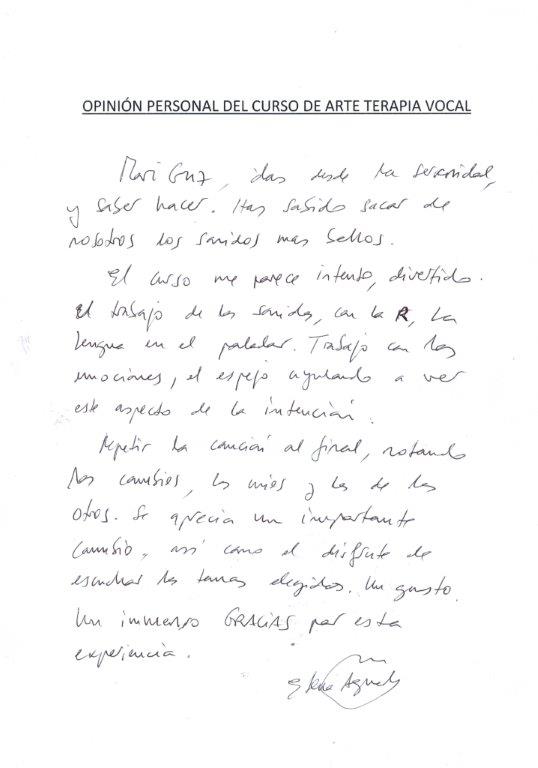 OPINIÓN PERSONAL DEL CURSO DE ARTE TERAPIA VOCAL
Mari Cruz, das desde la serenidad,
y saber hacer. Has sabido sacar de
nosotros los sonidos mas bellos.
El curso me parece intenso, divertido.
El trabajo de los sonidos, con la R, la
lengua en el paladar. Trabajo con las
emociones, el espejo ayudando a ver
este aspecto de la intención.
Repetir la canción al final, notando
los cambios, los mios y los de los
otros. Se aprecia un importante
cambio, así como el disfrute de
escuchar los temas elegidos. Un gusto.
Un inmenso GRACIAS por esta
experiencia.